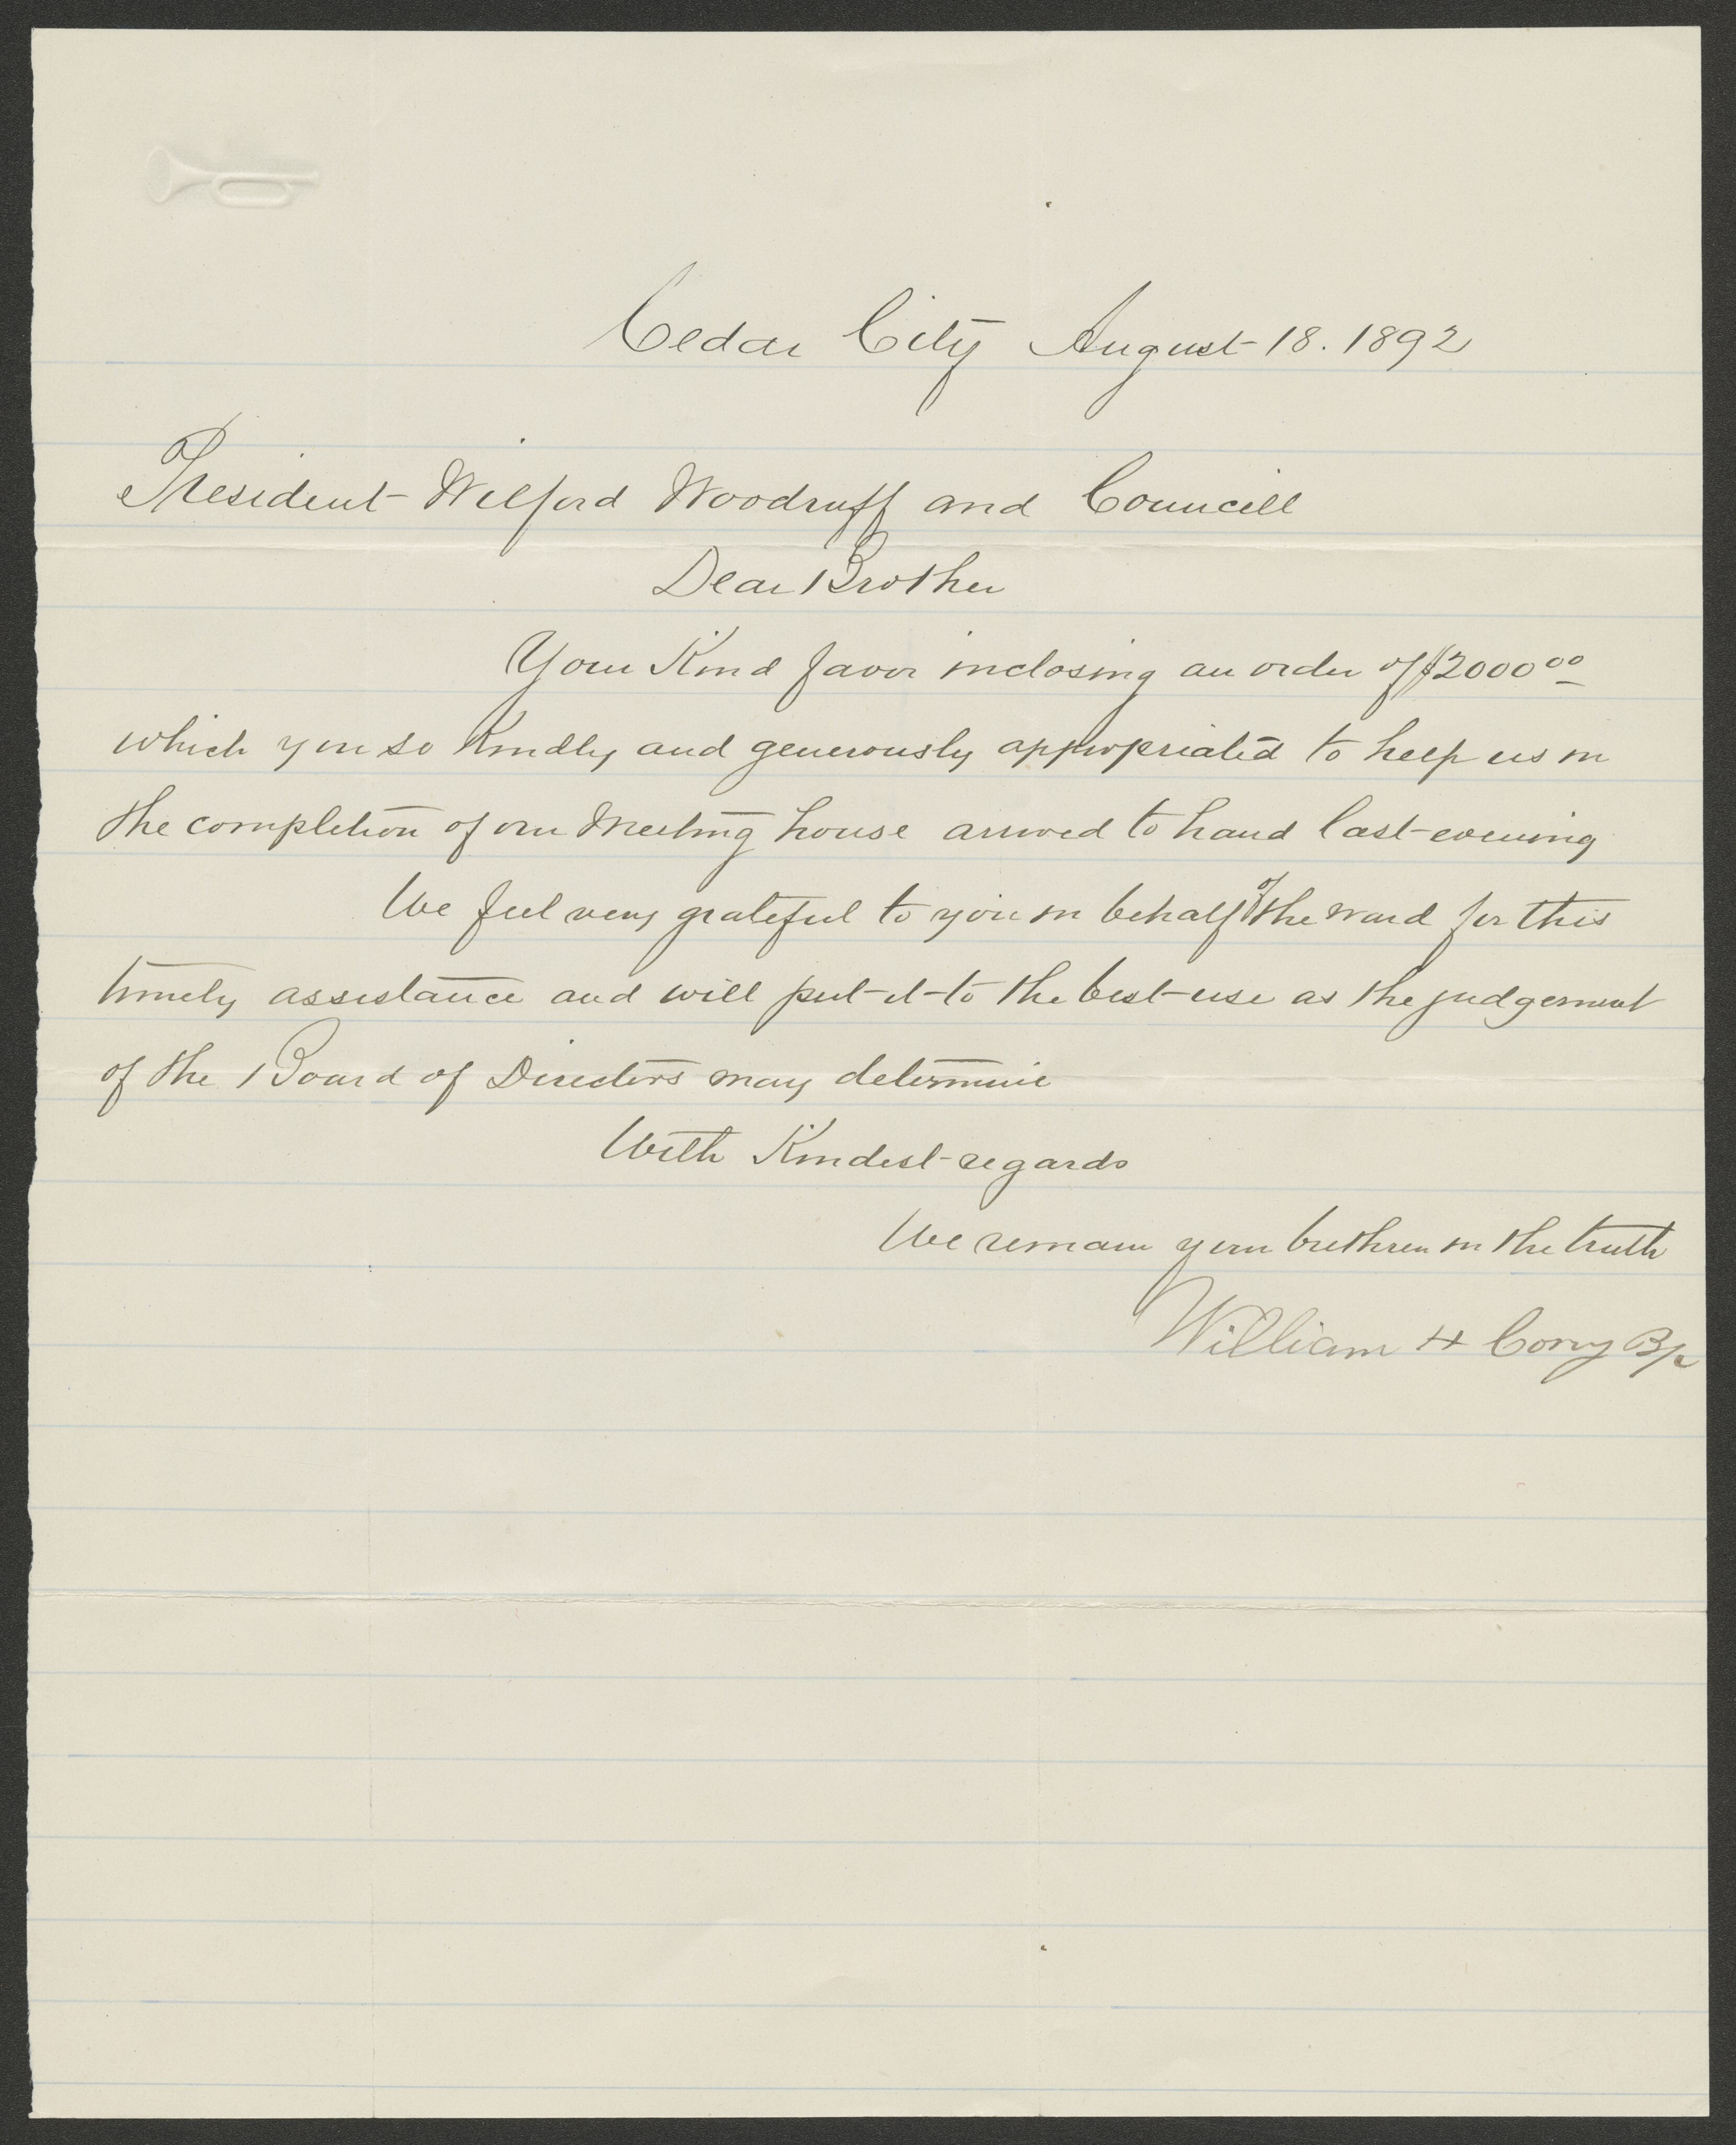 Cedar City August 18. 1892
President Wilford Woodruff and Councill
Dear Brother
Your Kind favor inclosing an order of $2000 00
which you so Kindly and generously appropriated to help us in
the completion of our Meeting house arrived to hand last evening
We feel very grateful to you in behalf of the ward for this
timely assistance and will put it to the best use as the judgement
of the Board of Directors may determine
With Kindest regards
We remain your brethren in the truth
William H Corry Bp